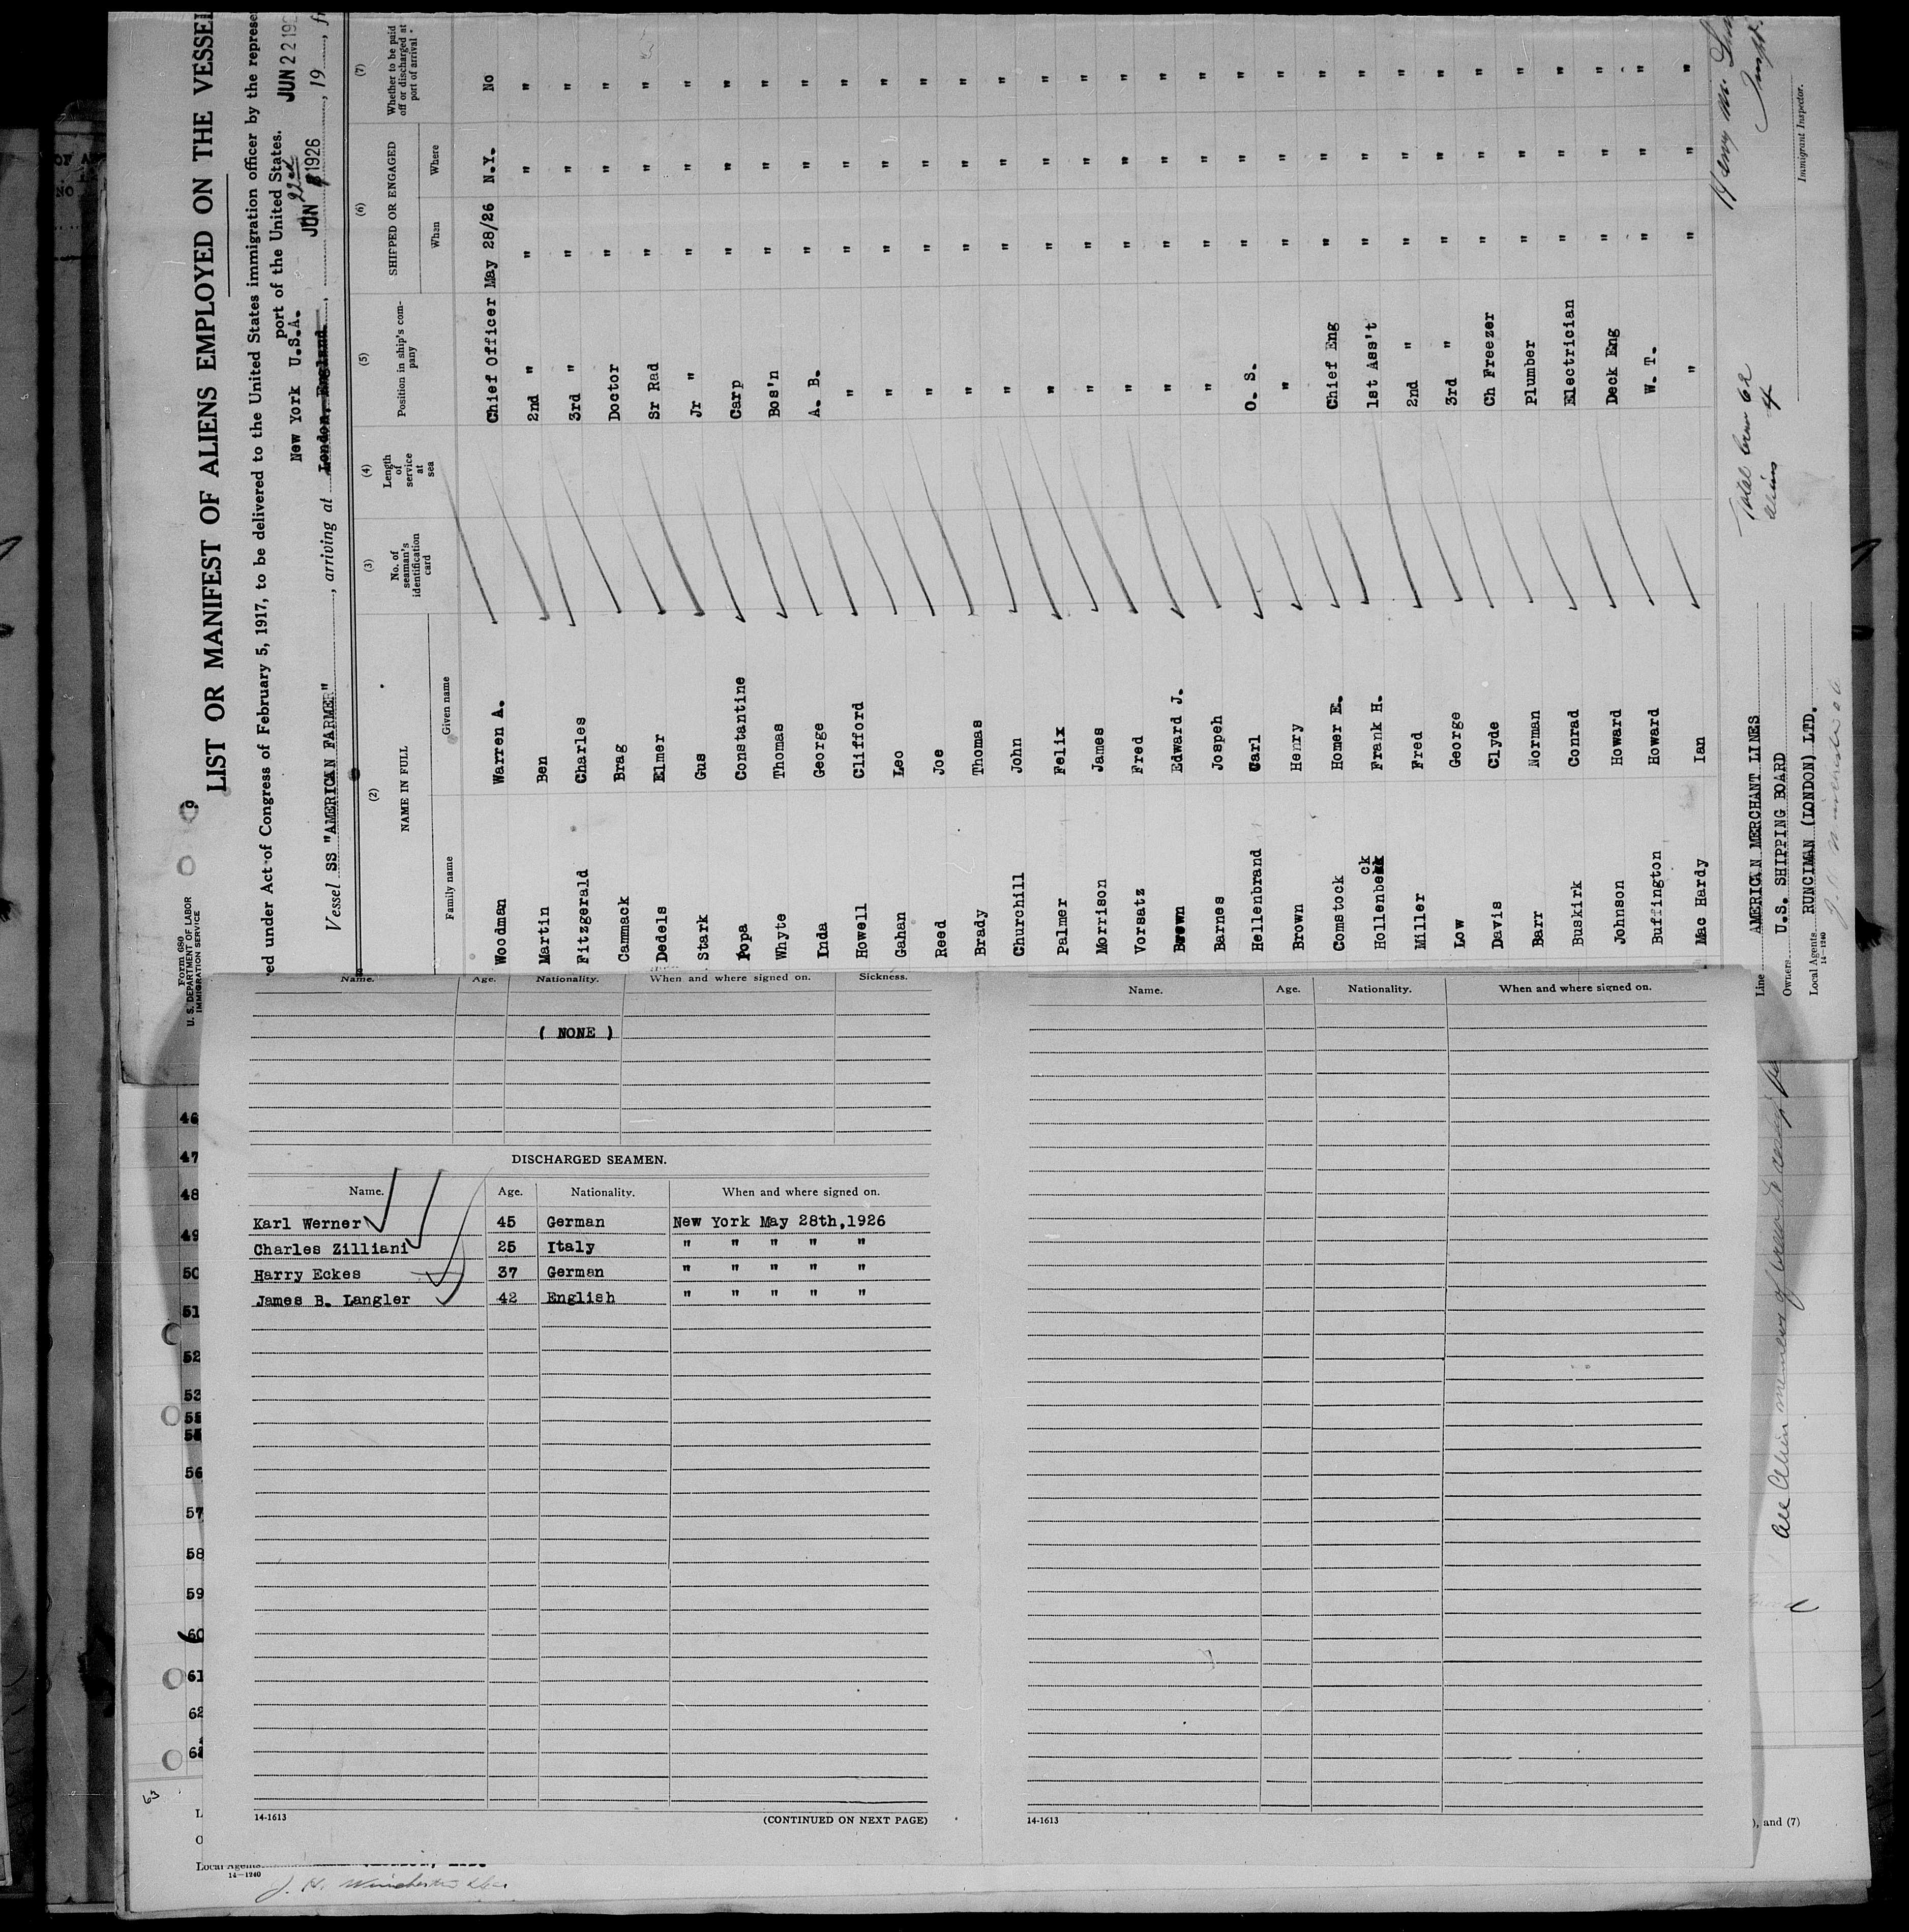 Form 680
U. S. DEPARTMENT OF LABOR
IMMIGRATION SERVICE
LIST OR MANIFEST OF ALIENS EMPLOYED ON THE VESSEL
ed under Act of Congress of February 5, 1917, to be delivered to the United States immigration officer by the represe
port of the United States.
JUN 22 192
New York U.S.A.
22nd
JUN 1926
Vessel SS "AMERICAN FARMER", arriving at London, England, 19
(2) (3) (4) (5) (6) (7)
NAME IN FULL
No. of seaman's identification card
Length of service at sea
Position in ship's company
SHIPPED OR ENGAGED
Whether to be paid off or discharged at port of arrival
Family name Given name When Where
Woodman Warren A. Chief Officer May 28/26 N.Y. No
Martin Ben 2nd " " " "
Fitzgerald Charles 3rd " " " "
Cammack Brag Doctor " " "
Dedels Elmer Sr Rad " " "
Stark Gus Jr " " " "
Popa Constantine Carp " " "
Whyte Thomas Bos'n " " "
Inda George A. B. " " "
Howell Clifford " " " "
Gahan Leo " " " "
Reed Joe " " " "
Brady Thomas " " " "
Churchill John " " " "
Palmer Felix " " " "
Morrison James " " " "
Vorsatz Fred " " " "
Brown Edward J. " " " "
Barnes Jospeh " " " "
Hellenbrand Carl O. S. " " "
Brown Henry " " " "
Comstock Homer E. Chief Eng " " "
Hollenbeck Frank H. 1st Ass't " " "
Miller Fred 2nd " " " "
Low George 3rd " " " "
Davis Clyde Ch Freezer " " "
Barr Norman Plumber " " "
Buskirk Conrad Electrician " " "
Johnson Howard Deck Eng " " "
Buffington Howard W. T. " " "
Mac Hardy Ian " " " "
Line AMERICAN MERCHANT LINES
Owners U.S. SHIPPING BOARD
Local Agents RUNCIMAN (LONDON) LTD.
14-1240
Total Crew 62
Aliens 4
Immigrant Inspector.
Name. Age. Nationality. When and where signed on. Sickness.
( NONE )
DISCHARGED SEAMEN.
Name. Age. Nationality. When and where signed on.
Karl Werner 45 German New York May 28th, 1926
Charles Zilliani 25 Italy " " " " "
Harry Eckes 37 German " " " " "
James B. Langler 42 English " " " " "
14-1613 (CONTINUED ON NEXT PAGE)
Name. Age. Nationality. When and where signed on.
14-1613
46
47
48
49
50
51
52
53
55
56
57
58
59
60
61
62
63
), and (7)
Local Agents
14-1240